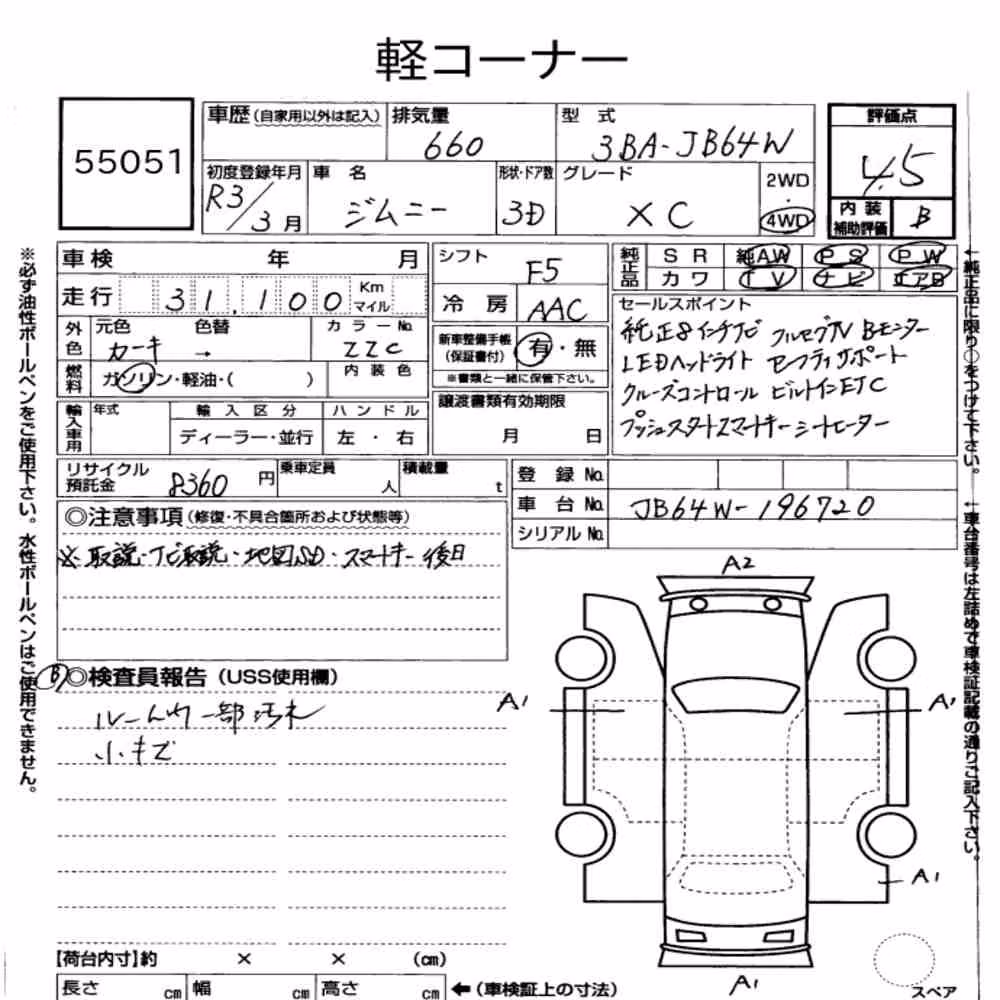 軽コーナー
55051
車歴(自家用以外は記入)
排気量
660
型 式
3BA-JB64W
評価点
4.5
初度登録年月
R3/3月
車 名
ジムニー
形状・ドア数
3D
グレード
XC
2WD
・
4WD
内装
補助評価
B
車検 年 月
走行 31,100 Km
マイル
シフト
F5
冷房
AAC
純正品
SR 純AW PS PW
カワ TV ナビ エアB
外色
元色 カーキ
色替 →
カラーNo.
ZZC
新車整備手帳
(保証書付)
有・無
※書類と一緒に保管下さい。
セールスポイント
純正8インチナビ フルセグTV Bモニター
LEDヘッドライト セーフティサポート
クルーズコントロール ビルトインETC
プッシュスタートスマートキー シートヒーター
燃料
ガソリン・軽油・( )
内装色
輸入車用
年式
輸入区分
ディーラー・並行
ハンドル
左・右
譲渡書類有効期限
月 日
リサイクル
預託金
8360円
乗車定員
人
積載量
t
登録No.
車台No.
JB64W-196720
シリアルNo.
◎注意事項(修復・不具合箇所および状態等)
※取説・ナビ取説・地図SD・スマートキー後日
B
◎検査員報告(USS使用欄)
ルーム内一部汚れ
小キズ
A2
A1
A1
A1
A1
【荷台内寸】約 × × (cm)
長さ cm 幅 cm 高さ cm
←(車検証上の寸法)
スペア
※必ず油性ボールペンをご使用下さい。水性ボールペンはご使用できません。
←純正品に限り○をつけて下さい。
←車台番号は左詰めで車検証記載の通りご記入下さい。